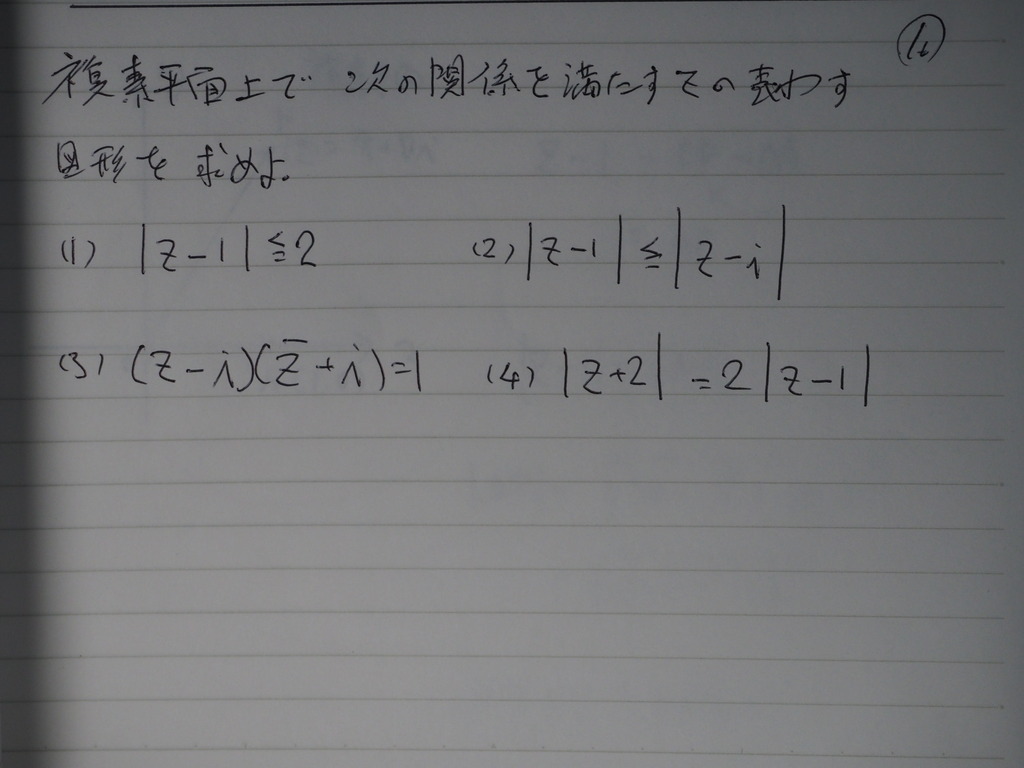 複素平面上で 次の関係を満たすzの表わす
図形を求めよ。
(1) |z-1|≦2 (2) |z-1|≦|z-i|
(3) (z-i)(z̄+i)=1 (4) |z+2|=2|z-1|